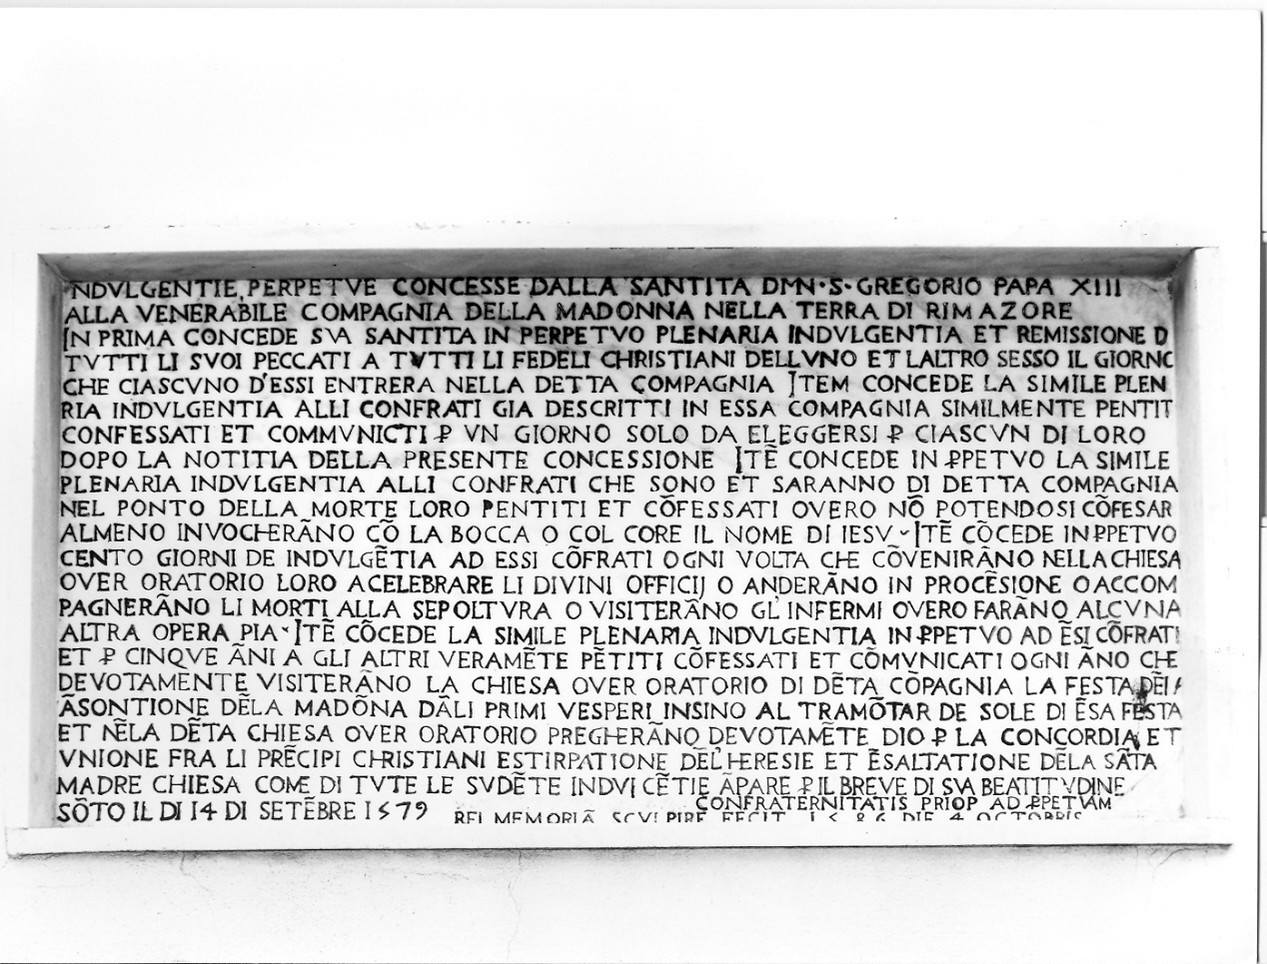 INDVLGENTIE PERPETVE CONCESSE DALLA SANTITA DMN·S·GREGORIO PAPA XIII
ALLA VENERABILE COMPAGNIA DELLA MADONNA NELLA TERRA DI RIMAZORE
IN PRIMA CONCEDE SVA SANTITA IN PERPETVO PLENARIA INDVLGENTIA ET REMISSIONE D
TVTTI LI SVOI PECCATI A TVTTI LI FEDELI CHRISTIANI DELLVNO ET LALTRO SESSO IL GIORNO
CHE CIASCVNO D'ESSI ENTRERA NELLA DETTA COMPAGNIA ITEM CONCEDE LA SIMILE PLEN
RIA INDVLGENTIA ALLI CONFRATI GIA DESCRITTI IN ESSA COMPAGNIA SIMILMENTE PENTIT
CONFESSATI ET COMMVNICTI ꝑ VN GIORNO SOLO DA ELEGGERSI ꝑ CIASCVN DI LORO
DOPO LA NOTITIA DELLA PRESENTE CONCESSIONE ITẼ CONCEDE IN ꝑPETVO LA SIMILE
PLENARIA INDVLGENTIA ALLI CONFRATI CHE SONO ET SARANNO DI DETTA COMPAGNIA
NEL PONTO DELLA MORTE LORO PENTITI ET CÕFESSATI OVERO NÕ POTENDOSI CÕFESAR
ALMENO INVOCHERÃNO CÕ LA BOCCA O COL CORE IL NOME DI IESV ITẼ CÕCEDE IN ꝑPETVO
CENTO GIORNI DE INDVLGẼTIA AD ESSI CÕFRATI OGNI VOLTA CHE CÕVENIRÃNO NELLA CHIESA
OVER ORATORIO LORO A CELEBRARE LI DIVINI OFFICIJ O ANDERÃNO IN PROCẼSIONE O ACCOM
PAGNERÃNO LI MORTI ALLA SEPOLTVRA O VISITERÃNO GL'INFERMI OVERO FARÃNO ALCVNA
ALTRA OPERA PIA ITẼ CÕCEDE LA SIMILE PLENARIA INDVLGENTIA IN ꝑPETVO AD ẼSI CÕFRATI
ET ꝑ CINQVE ÃNI A GLI ALTRI VERAMẼTE PẼTITI CÕFESSATI ET CÕMVNICATI OGNI ÃNO CHE
DEVOTAMENTE VISITERÃNO LA CHIESA OVER ORATORIO DI DẼTA CÕPAGNIA LA FESTA DẼL
ÃSONTIONE DẼLA MADÕNA DÃLI PRIMI VESPERI INSINO AL TRAMÕTAR DE SOLE DI ẼSA FESTA
ET NẼLA DẼTA CHIESA OVER ORATORIO PREGHERÃNO DEVOTAMẼTE DIO ꝑ LA CONCORDIA ET
VNIONE FRA LI PRẼCIPI CHRISTIANI ESTIRPATIONE DEL'HERESIE ET ẼSALTATIONE DẼLA SÃTA
MADRE CHIESA COME DI TVTE LE SVDẼTE INDVLCẼTIE ÃPARE ꝑ IL BREVE DI SVA BEATITVDINE
SÕTO IL DI 14 DI SETẼBRE 1579 CONFRATERNITATIS PRIOP AD ꝑPETVAM
REI MEMORIÃ SCVLPIRE FECIT 1586 DIE 4 OCTOBRIS